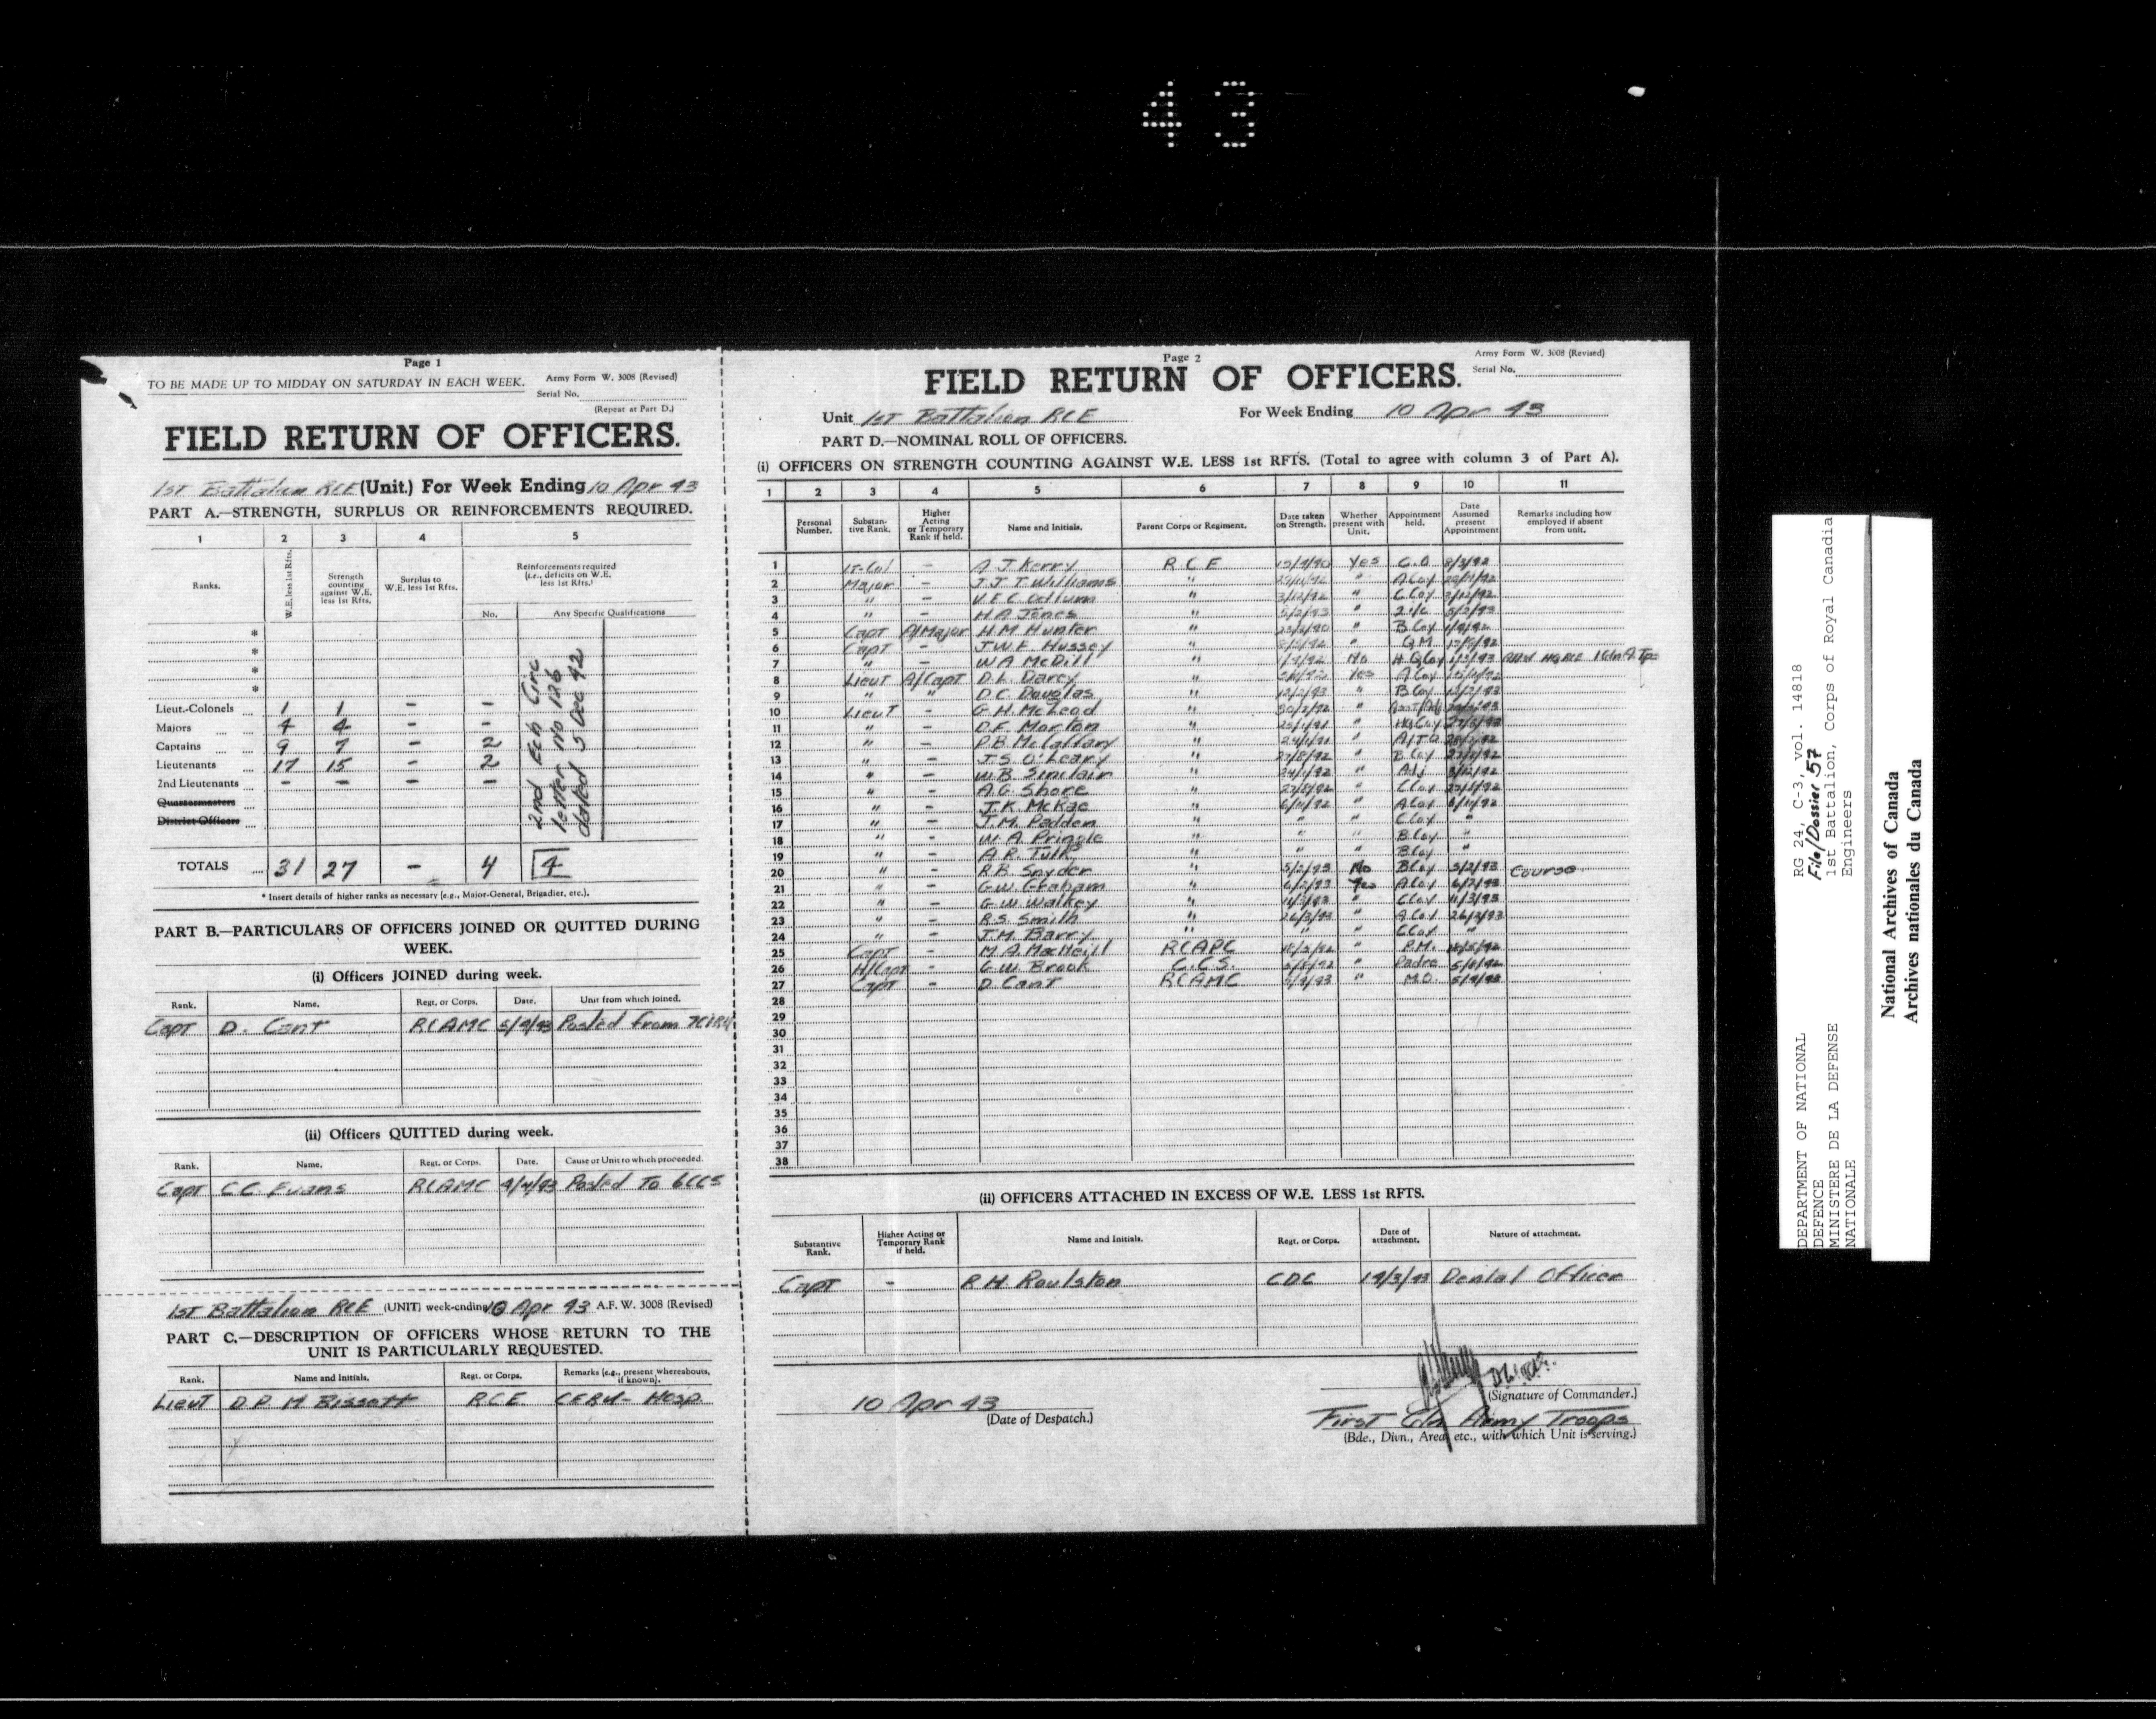 43
Page 1
TO BE MADE UP TO MIDDAY ON SATURDAY IN EACH WEEK.
Army Form W. 3008 (Revised)
Serial No.
(Repeat at Part D.)
FIELD RETURN OF OFFICERS.
1st Battalion RCE (Unit.) For Week Ending 10 Apr 43
PART A.—STRENGTH, SURPLUS OR REINFORCEMENTS REQUIRED.
1 2 3 4 5
Ranks. W.E. less 1st Rfts. Strength counting against W.E. less 1st Rfts. Surplus to W.E. less 1st Rfts. Reinforcements required (i.e., deficits on W.E. less 1st Rfts.)
No. Any Specific Qualifications
*
*
*
*
Lieut.-Colonels 1 1 - -
Majors 4 4 - -
Captains 9 7 - 2
Lieutenants 17 15 - 2
2nd Lieutenants - - - -
Quartermasters
District Officers
2nd Ech Circ
letter No 126
dated 5 Dec 42
TOTALS 31 27 - 4 4
* Insert details of higher ranks as necessary (e.g., Major-General, Brigadier, etc.).
PART B.—PARTICULARS OF OFFICERS JOINED OR QUITTED DURING
WEEK.
(i) Officers JOINED during week.
Rank. Name. Regt. or Corps. Date. Unit from which joined.
Capt D. Cant RCAMC 5/4/43 Posted from
(ii) Officers QUITTED during week.
Rank. Name. Regt. or Corps. Date. Cause or Unit to which proceeded.
Capt C.C. Evans RCAMC 4/4/43 Posted To 6CCS
1st Battalion RCE (UNIT) week-ending 10 Apr 43 A.F. W. 3008 (Revised)
PART C.—DESCRIPTION OF OFFICERS WHOSE RETURN TO THE
UNIT IS PARTICULARLY REQUESTED.
Rank. Name and Initials. Regt. or Corps. Remarks (e.g., present whereabouts, if known).
Lieut D.P.M Bissett RCE. CERU - Hosp.
Page 2
Army Form W. 3008 (Revised)
Serial No.
FIELD RETURN OF OFFICERS.
Unit 1st Battalion RCE For Week Ending 10 Apr 43
PART D.—NOMINAL ROLL OF OFFICERS.
(i) OFFICERS ON STRENGTH COUNTING AGAINST W.E. LESS 1st RFTS. (Total to agree with column 3 of Part A).
1 2 3 4 5 6 7 8 9 10 11
Personal Number. Substantive Rank. Higher Acting or Temporary Rank if held. Name and Initials. Parent Corps or Regiment. Date taken on Strength. Whether present with Unit. Appointment held. Date Assumed present Appointment Remarks including how employed if absent from unit.
1 Lt-Col - A J Kerry R C E Yes C.O.
2 Major - J.J.T. Williams " " A Coy
3 " - V.E.C. Odlum " 3/12/42 " C Coy 3/12/42
4 " - H A Jones " 5/2/43 " 2 i/c 5/2/43
5 Capt A/Major H M Hunter " " B Coy
6 Capt - J.W.E. Hussey " " QM
7 " - W A McDill " No H Q Coy
8 Lieut A/Capt D.L. Darcy " Yes A Coy
9 " " D C Douglas " 12/2/43 " B Coy 12/2/43
10 Lieut - G.H. McLeod " " Asst Adj
11 " - D.F. Morton " " HQ Coy
12 " - " "
13 " - J.S. O'Leary " " B Coy
14 " - W.B. Sinclair " " Adj
15 " - A.G. Shore " " C Coy
16 " - J.K. McKae " 6/11/42 " A Coy 6/11/42
17 " - J.M. Padden " " " C Coy "
18 " - W.A Pringle " " " B Coy "
19 " - A R. Tulk " " " B Coy "
20 " - R.B. Snyder " 5/2/43 No B Coy 5/2/43 Course
21 " - G.W. Graham " 6/2/43 Yes A Coy 6/2/43
22 " - G.W Walkey " 11/3/43 " C Coy 11/3/43
23 " - R.S. Smith " 26/3/43 " A Coy 26/3/43
24 " - J.M. Barry " " " C Coy "
25 Capt - M A MacNeill RCAPC " P.M.
26 H/Capt - G W Brook C.C.S. " Padre
27 Capt - D Cant RCAMC 5/4/43 " M.O. 5/4/43
28
29
30
31
32
33
34
35
36
37
38
(ii) OFFICERS ATTACHED IN EXCESS OF W.E. LESS 1st RFTS.
Substantive Rank. Higher Acting or Temporary Rank if held. Name and Initials. Regt. or Corps. Date of attachment. Nature of attachment.
Capt - R H Roulston CDC 19/3/43 Dental Officer
10 Apr 43
(Date of Despatch.)
(Signature of Commander.)
First Cdn Army Troops
(Bde., Divn., Area, etc., with which Unit is serving.)
DEPARTMENT OF NATIONAL
DEFENCE
MINISTERE DE LA DEFENSE
NATIONALE
RG 24, C-3, vol. 14818
File/Dossier 57
1st Battalion, Corps of Royal Canadia
Engineers
National Archives of Canada
Archives nationales du Canada